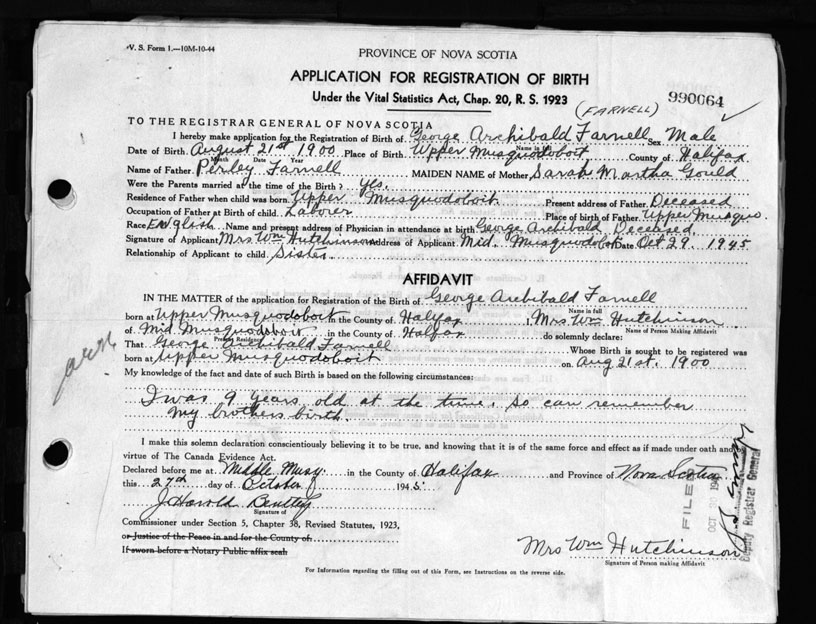 V. S. Form 1.—10M-10-44
PROVINCE OF NOVA SCOTIA
APPLICATION FOR REGISTRATION OF BIRTH
Under the Vital Statistics Act, Chap. 20, R. S. 1923
(FARNELL)
990064
TO THE REGISTRAR GENERAL OF NOVA SCOTIA
I hereby make application for the Registration of Birth of George Archibald Farnell Sex Male
Name in full
Date of Birth August 21st 1900 Place of Birth Upper Musquodoboit County of Halifax
Month Date Year
Name of Father Perley Farnell MAIDEN NAME of Mother Sarah Martha Gould
Were the Parents married at the time of the Birth? Yes.
Residence of Father when child was born Upper Musquodoboit Present address of Father Deceased
Occupation of Father at Birth of child Laborer Place of birth of Father Upper Musquo
Race English Name and present address of Physician in attendance at birth George Archibald Deceased
Signature of Applicant Mrs Wm Hutchinson Address of Applicant Mid. Musquodoboit Date Oct 29. 1945
Relationship of Applicant to child Sister
AFFIDAVIT
IN THE MATTER of the application for Registration of the Birth of George Archibald Farnell
Name in full
born at Upper Musquodoboit in the County of Halifax I, Mrs Wm Hutchinson
Name of Person Making Affidavit
of Mid Musquodoboit in the County of Halfax do solemnly declare:
Present Residence
That George Archibald Farnell Whose Birth is sought to be registered was
born at Upper Musquodoboit on Aug 21st. 1900
My knowledge of the fact and date of such Birth is based on the following circumstances:
I was 9 years old at the time, so can remember
my brothers birth.
I make this solemn declaration conscientiously believing it to be true, and knowing that it is of the same force and effect as if made under oath and
virtue of The Canada Evidence Act.
Declared before me at Middle Musq. in the County of Halifax and Province of Nova Scotia
this 27th day of October 1945.
J Harold Bentley
Signature of
Commissioner under Section 5, Chapter 38, Revised Statutes, 1923,
or Justice of the Peace in and for the County of
If sworn before a Notary Public affix seal
Mrs Wm Hutchinson
Signature of Person making Affidavit
For Information regarding the filling out of this Form, see Instructions on the reverse side.
FILED
OCT
Deputy Registrar General